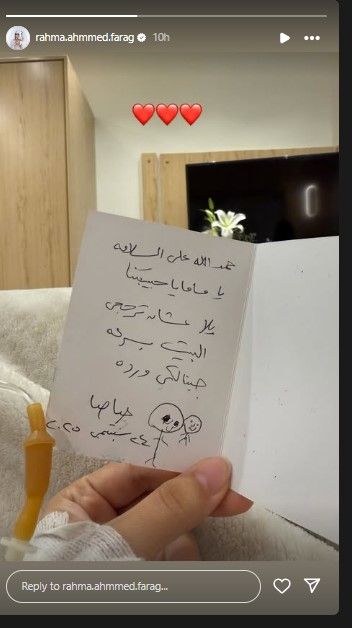 rahma.ahmmed.farag 10h
حمد الله على السلامه
يا ماما يا حبيبتنا
يلا عشان ترجعي
البيت بسرعه
جبنالكي ورده
٢٤ سبتمبر ٢٠٢٥
Reply to rahma.ahmmed.farag...